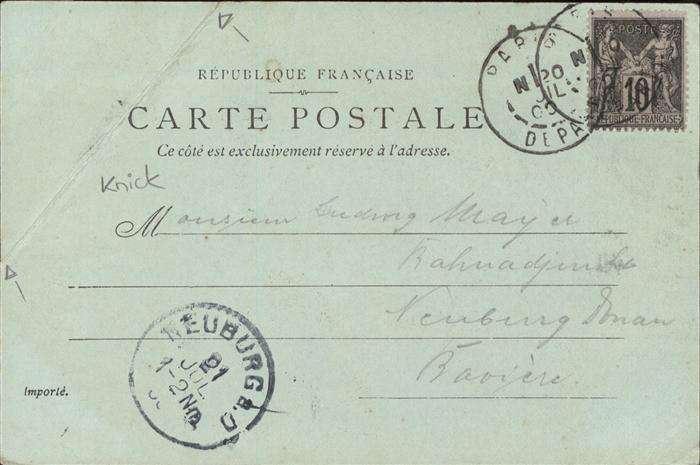 RÉPUBLIQUE FRANÇAISE
CARTE POSTALE
Ce côté est exclusivement réservé à l'adresse.
POSTE
10
RÉPUBLIQUE FRANÇAISE
PARIS
20
JUIL
DEPART
Knick
Monsieur Ludwig Mayer
Neuburg Donau
Bavière
NEUBURG a. D.
21
JUL
1-2 NM
Importé.